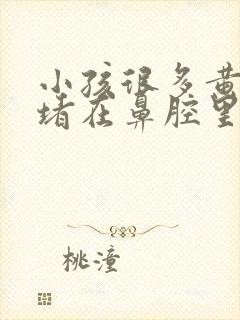 小孩很多黄
堵在鼻腔里
桃潼